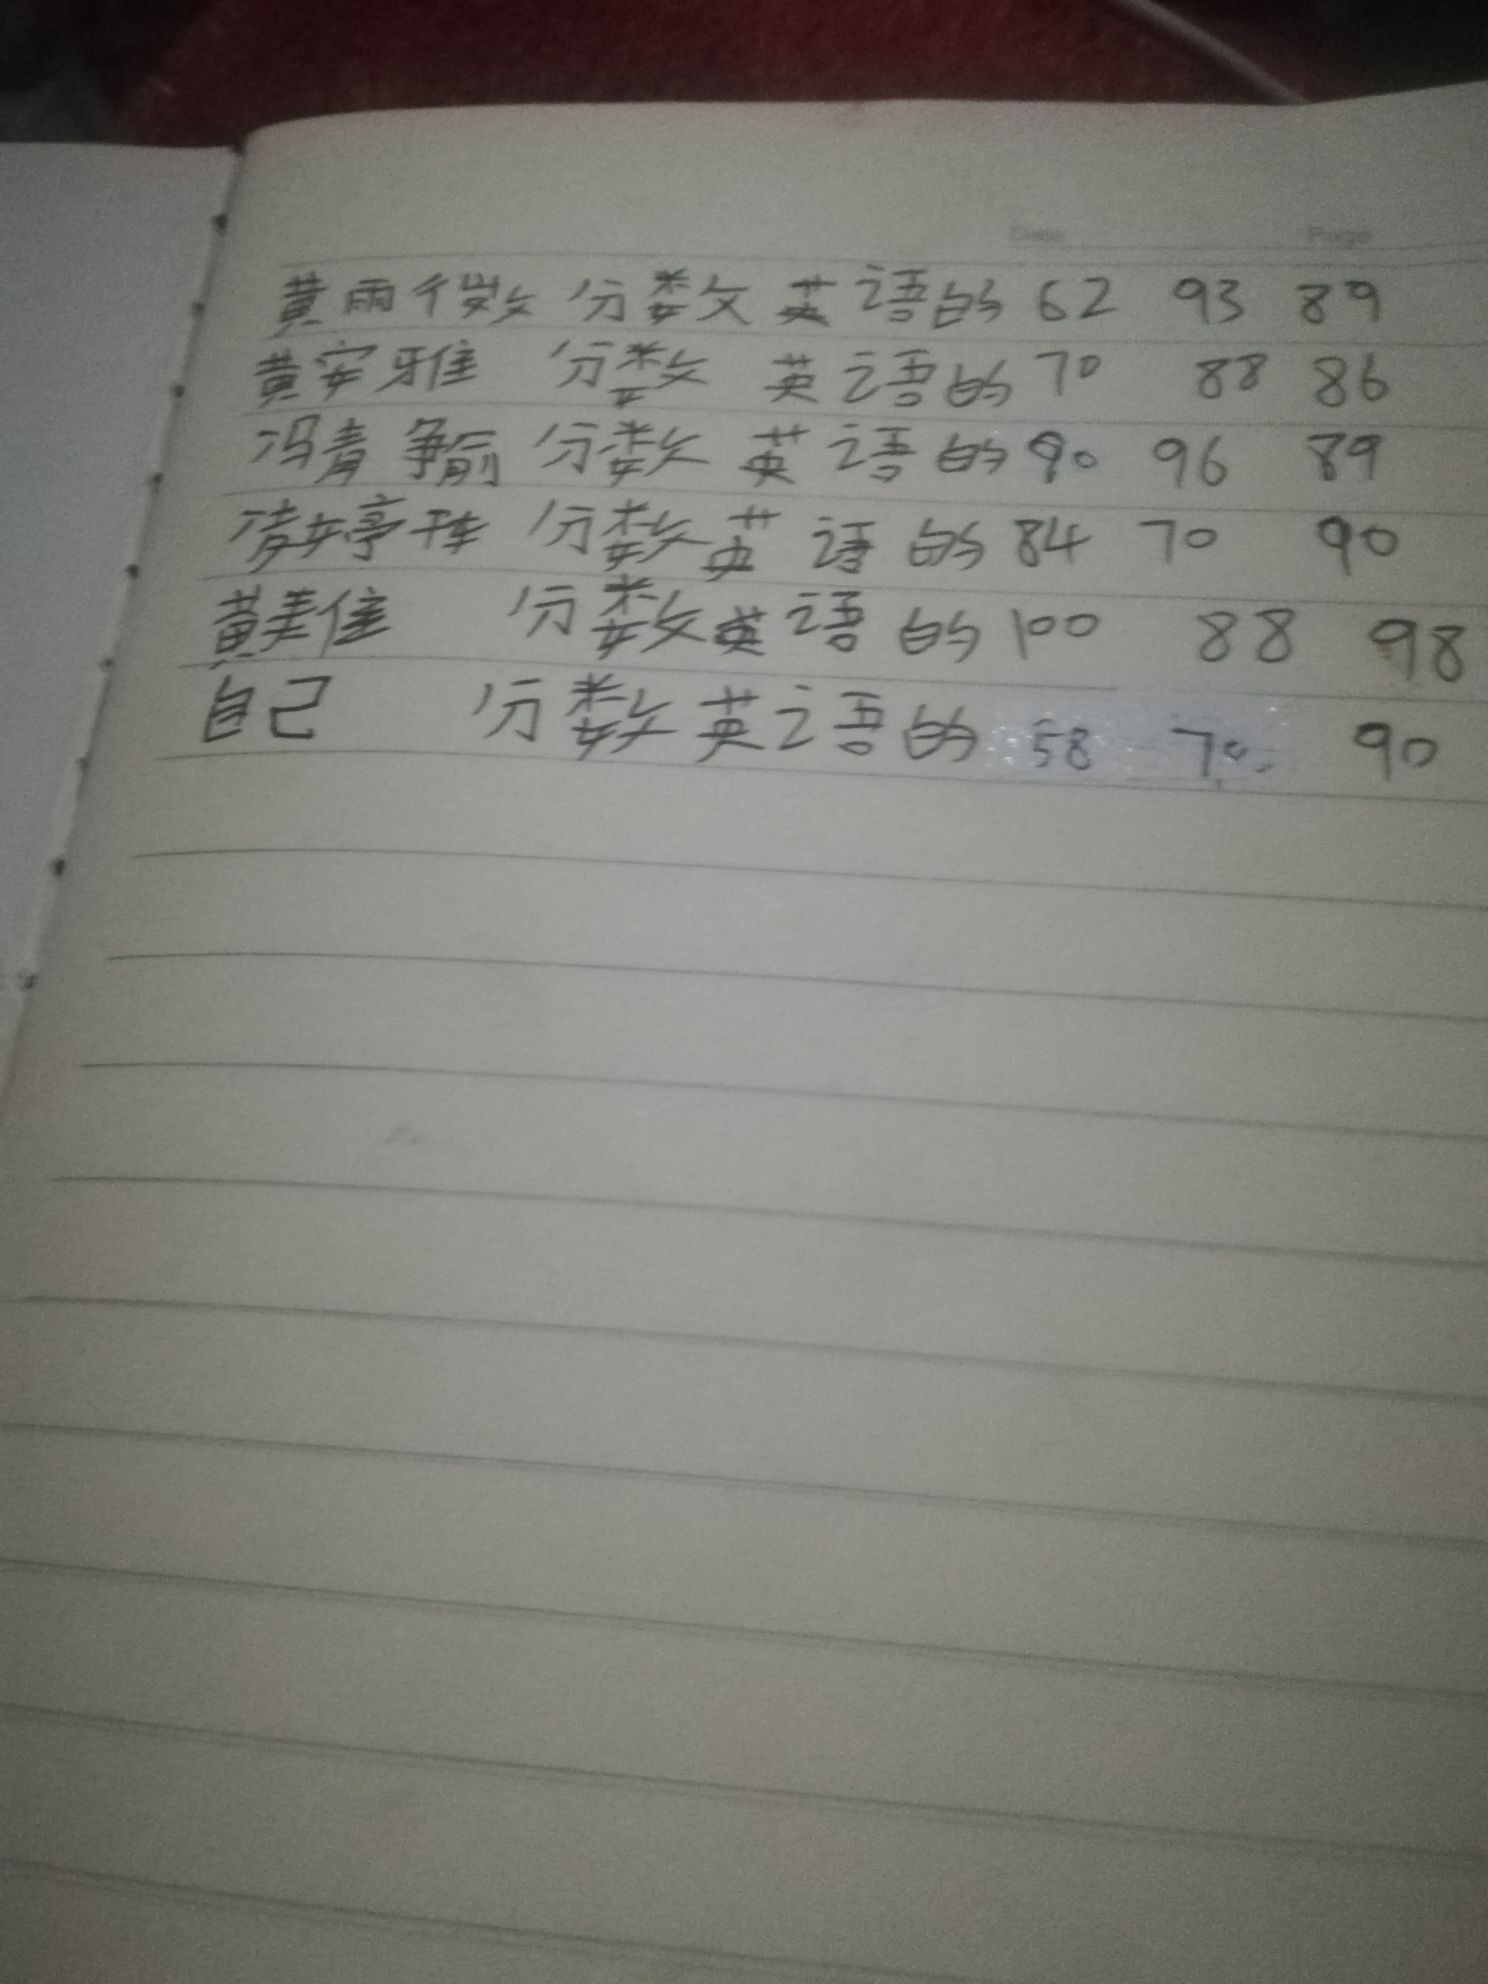 Date Page
黄雨微 分数 英语的 62 93 89
黄安雅 分数 英语的 70 88 86
冯青 分数 英语的 90 96 89
婷 分数 英语的 84 70 90
黄美佳 分数 英语的 100 88 98
自己 分数 英语的 58 70 90